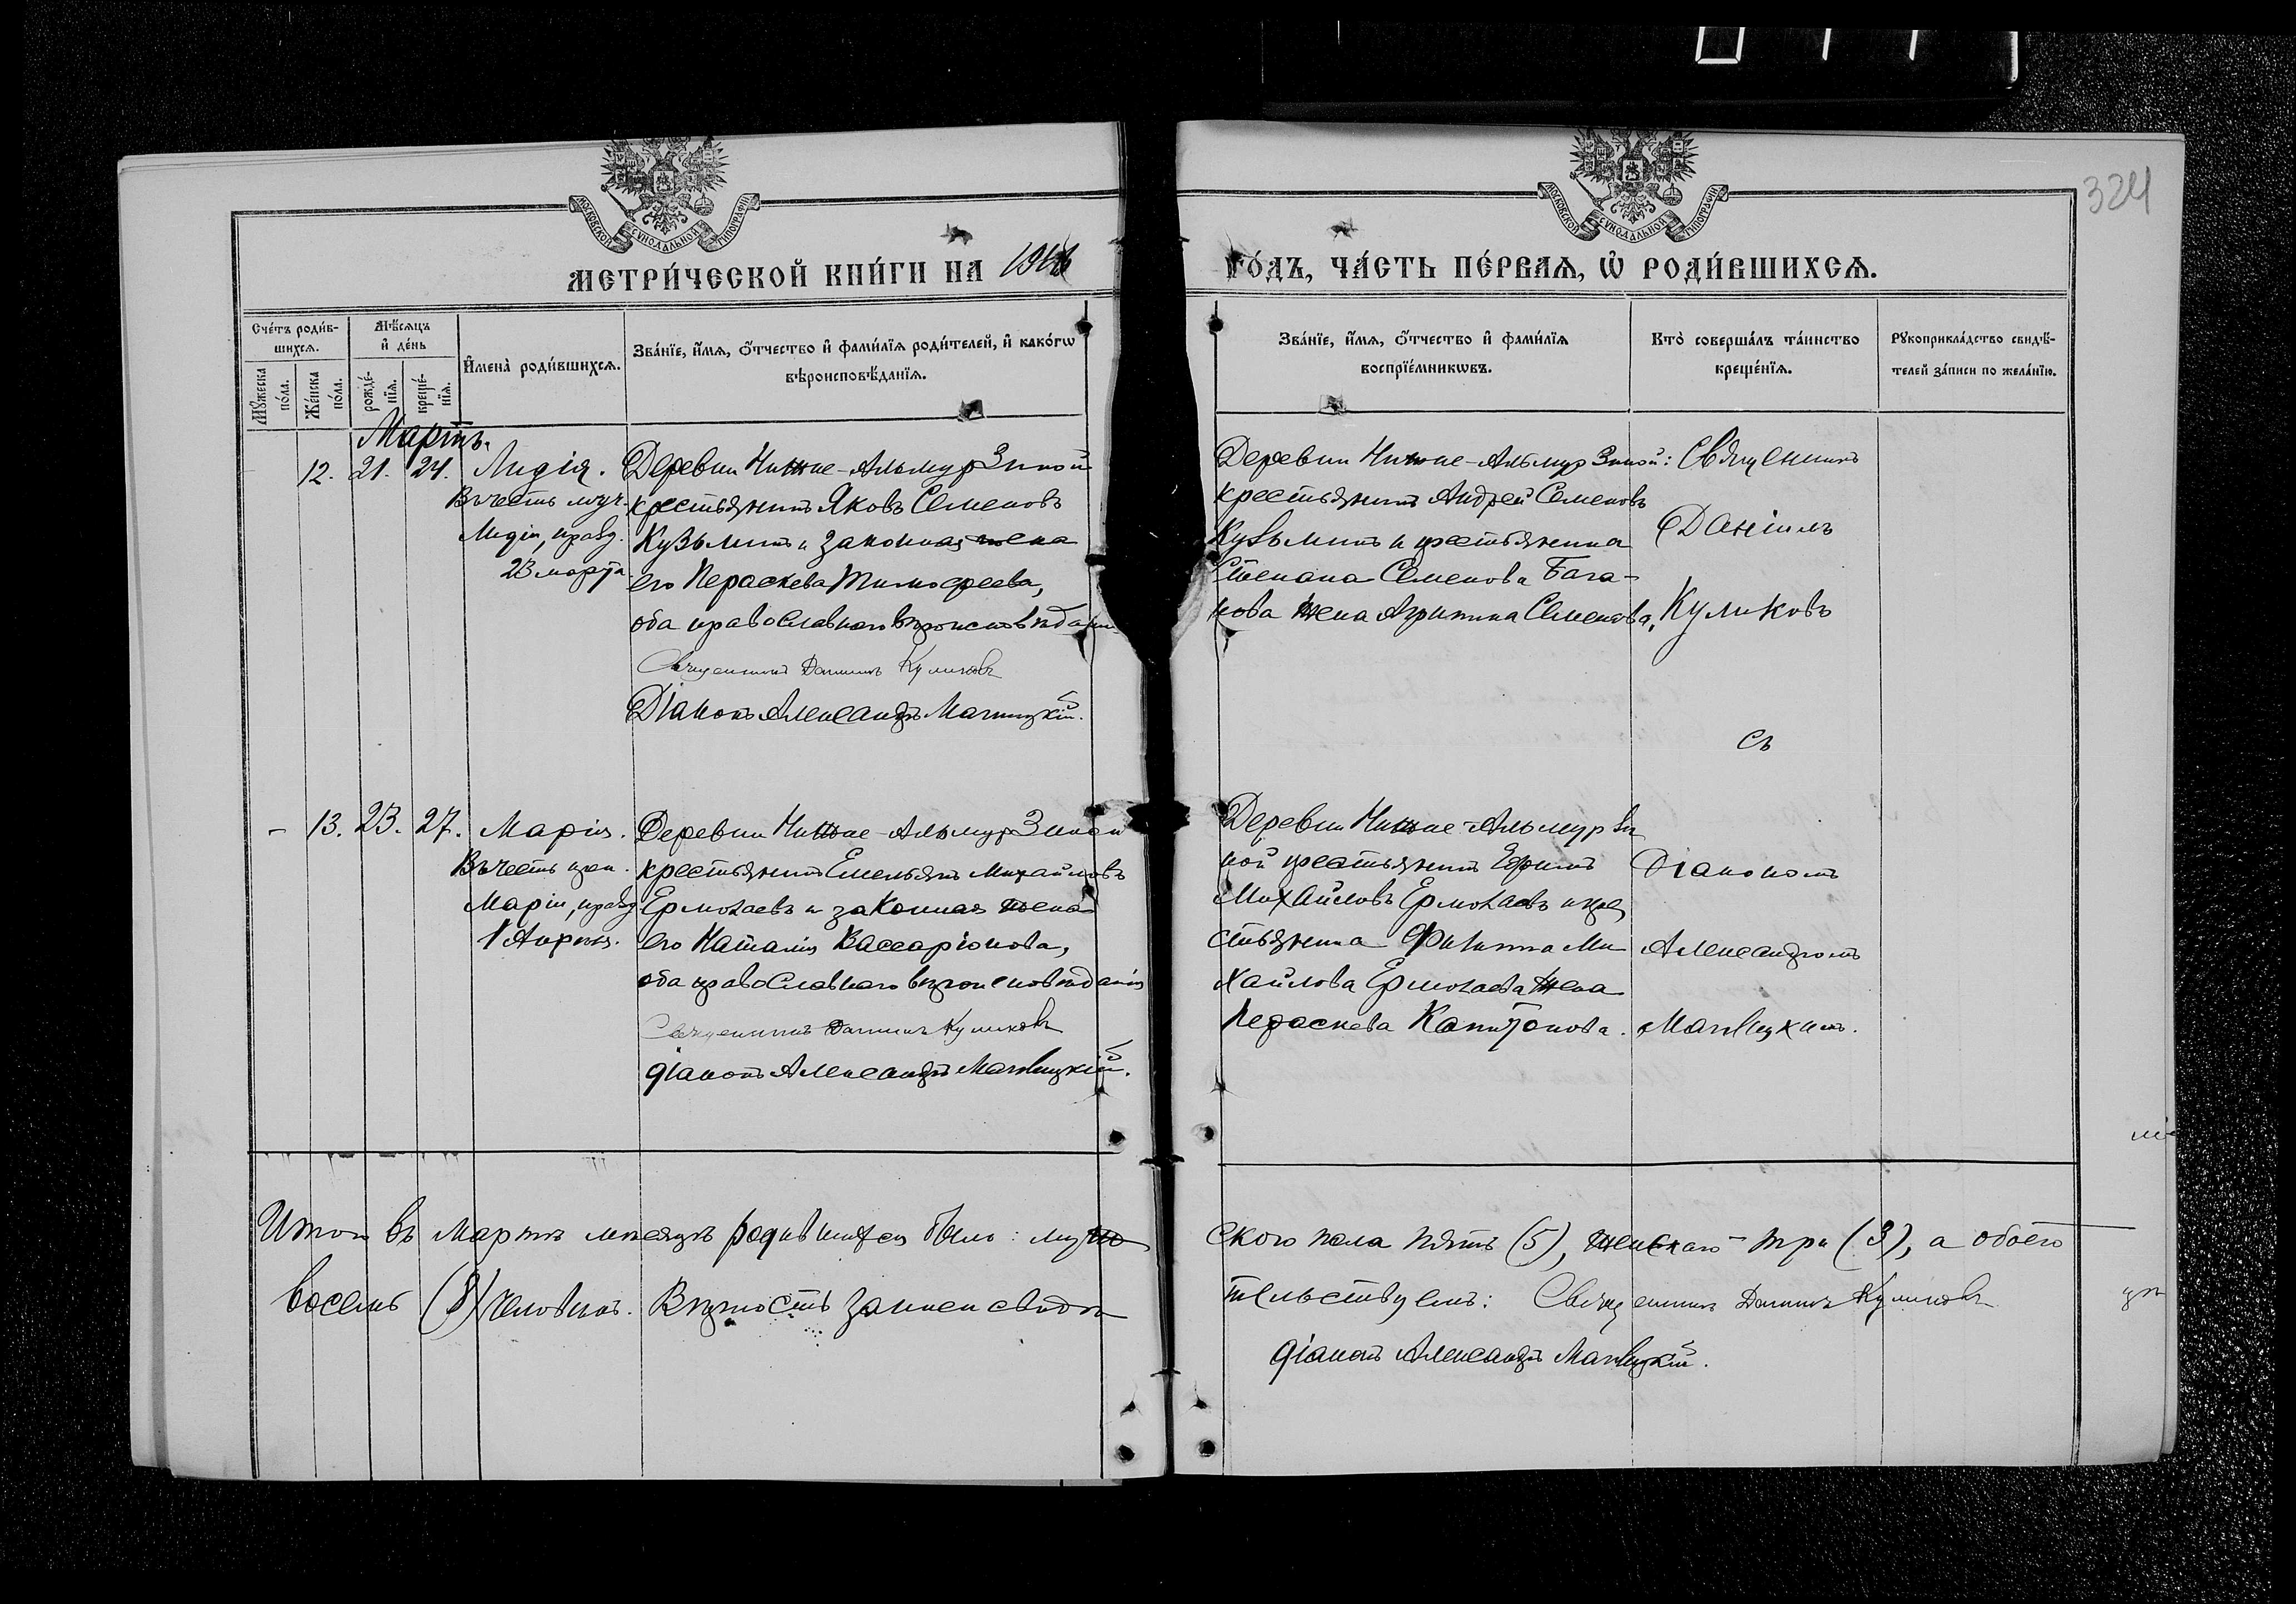 324
МОСКОВСКОЙ СѴНОДАЛЬНОЙ ТИПОГРАФІИ
МОСКОВСКОЙ СѴНОДАЛЬНОЙ ТИПОГРАФІИ
МЕТРИ́ЧЕСКОЙ КНИ́ГИ НА
ГО́ДЪ, ЧА́СТЬ ПЕ́РВАЯ, Ѡ҆ РОДИ́ВШИХСЯ.
Сче́тъ роди́в-
шихся.
Мѣ́сяцъ
и҆ де́нь
И҆мена̀ роди́вшихся.
Зва́нїе, и҆́мя, ѻ҆́тчество и҆ фами́лїя роди́телей, и҆ како́гѡ
вѣроисповѣ́данїя.
Мꙋ́жеска
по́ла.
Же́нска
по́ла.
рожде́-
нїя.
креще́-
нїя.
Зва́нїе, и҆́мя, ѻ҆́тчество и҆ фами́лїя
воспрїе́мникѡвъ.
Кто̀ соверша́лъ та́инство
креще́нїя.
Рꙋкоприкла́дство свидѣ́-
телей за́писи по жела́нїю.
Мартъ.
12. 21. 24. Лидія.
Въ честь муч.
Лидіи, празд.
23 марта
Деревни Нижне-Альмурзиной
крестьянинъ Яковъ Семеновъ
Кузьминъ и законная жена
его Пераскева Тимофеева,
оба православнаго вѣроисповѣданія
Священникъ Даніилъ Куликовъ
Діаконъ Александръ Магницкій.
Деревни Нижне-Альмурзиной:
крестьянинъ Андрей Семеновъ
Кузьминъ и крестьянина
Степана Семенова Бага-
нова жена Агрипина Семенова,
Священникъ
Даніилъ
Куликовъ
съ
- 13. 23. 27. Марія.
Въ честь преп.
Маріи, празд.
1 Апрѣля.
Деревни Нижне-Альмурзиной
крестьянинъ Емельянъ Михайловъ
Ермолаевъ и законная жена
его Наталія Вассаріонова,
оба православнаго вѣроисповѣданія
Священникъ Даніилъ Куликовъ
діаконъ Александръ Магницкій.
Деревни Нижне-Альмурзи
ной крестьянинъ Ефимъ
Михайловъ Ермолаевъ и кре
стьянина Филиппа Ми
хайлова Ермолаева жена
Пераскева Капитонова.
Діакономъ
Александромъ
Магницкимъ.
Итого въ мартѣ мѣсяцѣ родившихся было: муж
ского пола пять (5), женскаго три (3), а обоего
восемь (8) человѣкъ. Вѣрность записи свидѣ
тельствуемъ: Священникъ Даніилъ Куликовъ
діаконъ Александръ Магницкій.